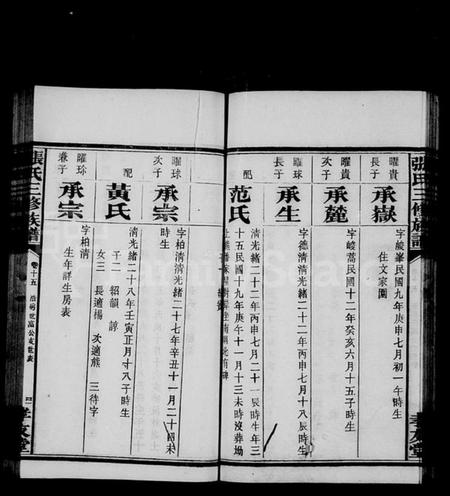 張氏三修族譜
曜貴
長子
承嶽
字峻峯民國九年庚申七月初一午時生
住文家園
曜貴
次子
承麓
字崚蒿民國十二年癸亥六月十五子時生
曜球
長子
承生
字德清清光緒二十二年丙申七月十八辰時生
清光緒二十二年丙申七月二十 辰時生年三
十五民國十九年庚午十一月十三未時沒葬坳
配
范氏
曜球
次子
承宗
字柏清清光緒二十七年辛丑十一月二十四未
時生
配
黃氏
清光緒二十八年壬寅正月十八子時生
子二 紹韻 諄
女三 長適楊 次適熊 三待字
曜珍
養子
承宗
字柏清
生年詳生房表
張氏三修族譜
卷十五
孝友堂